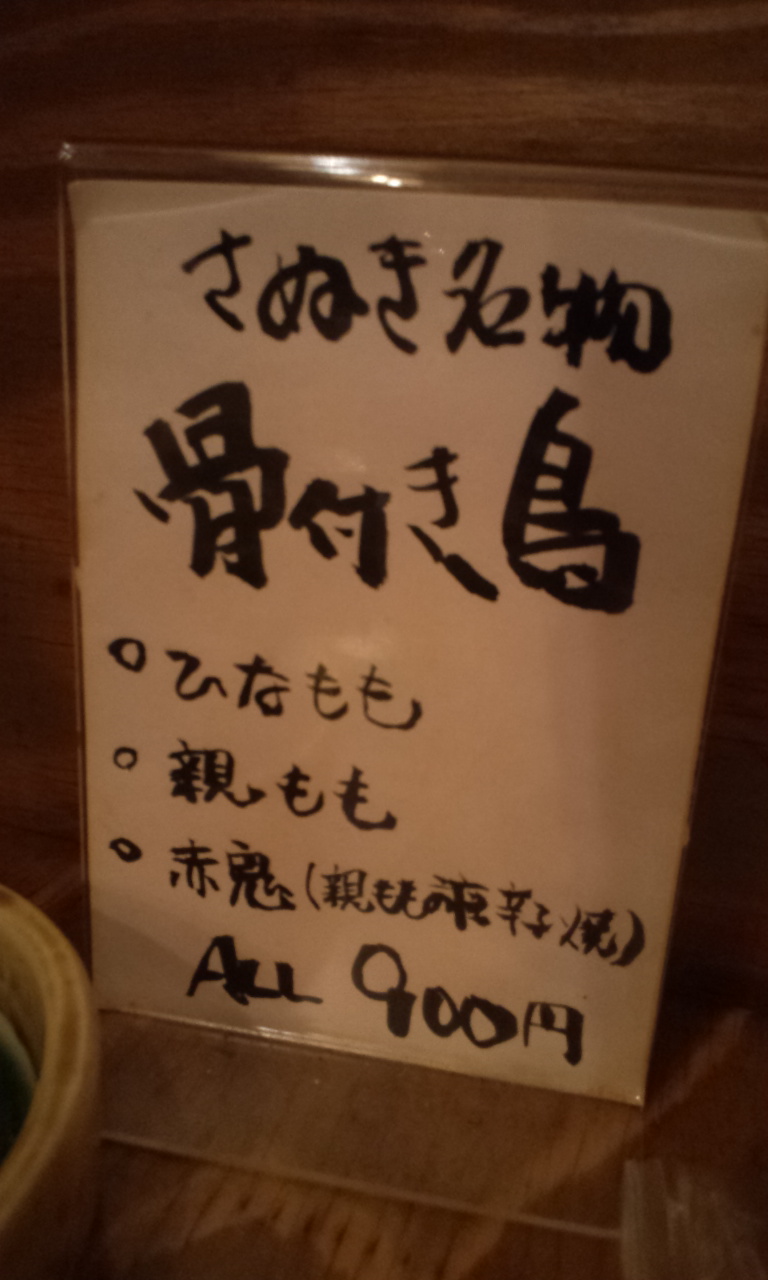 さぬき名物
骨付き鳥
○ ひなもも
○ 親もも
○ 赤鬼(親ももの激辛子焼)
ALL 900円